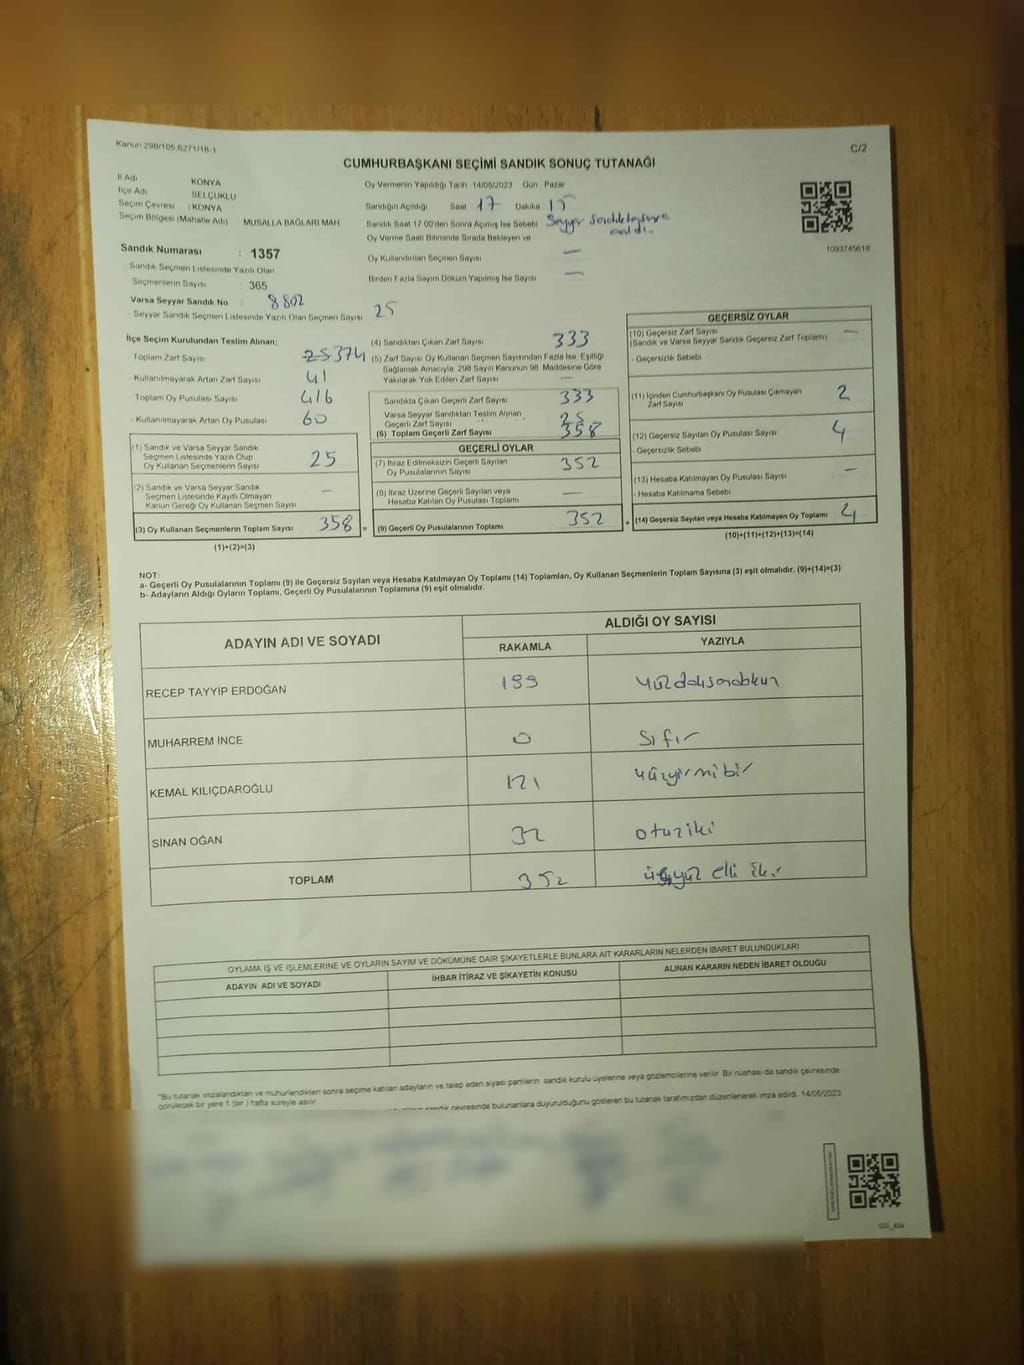 Kanun 298/105,6271/18-1
C/2
CUMHURBAŞKANI SEÇİMİ SANDIK SONUÇ TUTANAĞI
İl Adı KONYA
İlçe Adı SELÇUKLU
Seçim Çevresi : KONYA
Seçim Bölgesi (Mahalle Adı) MUSALLA BAĞLARI MAH
Sandık Numarası : 1357
Sandık Seçmen Listesinde Yazılı Olan
Seçmenlerin Sayısı : 365
Varsa Seyyar Sandık No : 8802
- Seyyar Sandık Seçmen Listesinde Yazılı Olan Seçmen Sayısı 25
Oy Vermenin Yapıldığı Tarih 14/05/2023 Gün Pazar
Sandığın Açıldığı Saat 17 Dakika 15
Sandık Saat 17:00'den Sonra Açılmış İse Sebebi Seyyar
Oy Verme Saati Bitiminde Sırada Bekleyen ve
Oy Kullandırılan Seçmen Sayısı —
Birden Fazla Sayım Döküm Yapılmış İse Sayısı —
1093745618
İlçe Seçim Kurulundan Teslim Alınan;
- Toplam Zarf Sayısı 374
- Kullanılmayarak Artan Zarf Sayısı 41
- Toplam Oy Pusulası Sayısı 416
- Kullanılmayarak Artan Oy Pusulası 60
(1) Sandık ve Varsa Seyyar Sandık
Seçmen Listesinde Yazılı Olup
Oy Kullanan Seçmenlerin Sayısı 25
(2) Sandık ve Varsa Seyyar Sandık
Seçmen Listesinde Kayıtlı Olmayan
Kanun Gereği Oy Kullanan Seçmen Sayısı —
(3) Oy Kullanan Seçmenlerin Toplam Sayısı 358 =
(1)+(2)=(3)
(4) Sandıktan Çıkan Zarf Sayısı 333
(5) Zarf Sayısı Oy Kullanan Seçmen Sayısından Fazla İse, Eşitliği
Sağlamak Amacıyla, 298 Sayılı Kanunun 98. Maddesine Göre
Yakılarak Yok Edilen Zarf Sayısı —
Sandıkta Çıkan Geçerli Zarf Sayısı 333
Varsa Seyyar Sandıktan Teslim Alınan
Geçerli Zarf Sayısı 25
(6) Toplam Geçerli Zarf Sayısı 358
GEÇERLİ OYLAR
(7) İtiraz Edilmeksizin Geçerli Sayılan
Oy Pusulalarının Sayısı 352
(8) İtiraz Üzerine Geçerli Sayılan veya
Hesaba Katılan Oy Pusulası Toplamı —
(9) Geçerli Oy Pusulalarının Toplamı 352 +
GEÇERSİZ OYLAR
(10) Geçersiz Zarf Sayısı —
(Sandık ve Varsa Seyyar Sandık Geçersiz Zarf Toplamı)
- Geçersizlik Sebebi
(11) İçinden Cumhurbaşkanı Oy Pusulası Çıkmayan
Zarf Sayısı 2
(12) Geçersiz Sayılan Oy Pusulası Sayısı 4
- Geçersizlik Sebebi
(13) Hesaba Katılmayan Oy Pusulası Sayısı —
- Hesaba Katılmama Sebebi
(14) Geçersiz Sayılan veya Hesaba Katılmayan Oy Toplamı 4
(10)+(11)+(12)+(13)=(14)
NOT:
a- Geçerli Oy Pusulalarının Toplamı (9) ile Geçersiz Sayılan veya Hesaba Katılmayan Oy Toplamı (14) Toplamları, Oy Kullanan Seçmenlerin Toplam Sayısına (3) eşit olmalıdır. (9)+(14)=(3)
b- Adayların Aldığı Oyların Toplamı, Geçerli Oy Pusulalarının Toplamına (9) eşit olmalıdır.
ADAYIN ADI VE SOYADI
ALDIĞI OY SAYISI
RAKAMLA YAZIYLA
RECEP TAYYİP ERDOĞAN 199
MUHARREM İNCE 0 Sıfır
KEMAL KILIÇDAROĞLU 121 yüzyirmibir
SİNAN OĞAN 32 otuziki
TOPLAM 352 üçyüz elli iki
OYLAMA İŞ VE İŞLEMLERİNE VE OYLARIN SAYIM VE DÖKÜMÜNE DAİR ŞİKAYETLERLE BUNLARA AİT KARARLARIN NELERDEN İBARET BULUNDUKLARI
ADAYIN ADI VE SOYADI İHBAR İTİRAZ VE ŞİKAYETİN KONUSU ALINAN KARARIN NEDEN İBARET OLDUĞU
"Bu tutanak imzalandıktan ve mühürlendikten sonra seçime katılan adayların ve talep eden siyasi partilerin sandık kurulu üyelerine veya gözlemcilerine verilir. Bir nüshası da sandık çevresinde
görülecek bir yere 1 (bir ) hafta süreyle asılır.
sandık çevresinde bulunanlara duyurulduğunu gösteren bu tutanak tarafımızdan düzenlenerek imza edildi. 14/05/2023